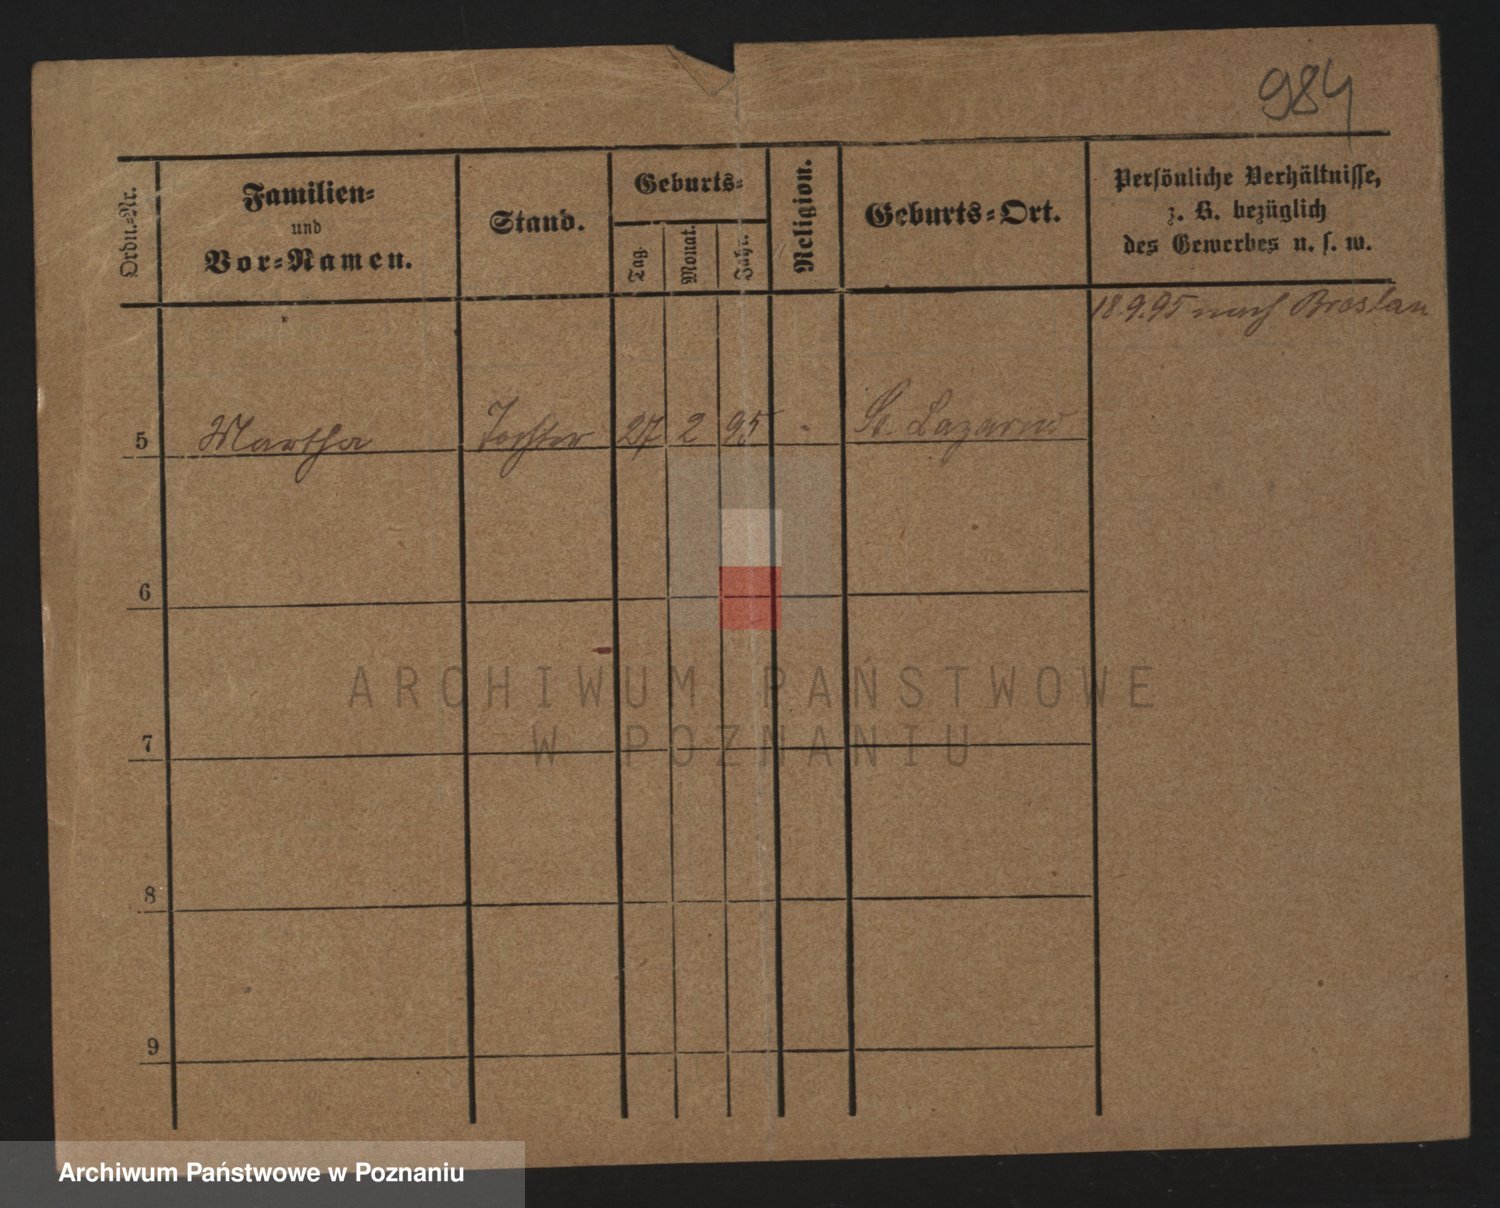 984
Ordn.-Nr.
Familien-
und
Vor-Namen.
Stand.
Geburts-
Tag.
Monat.
Jahr.
Religion.
Geburts-Ort.
Persönliche Verhältnisse,
z. B. bezüglich
des Gewerbes u. s. w.
18.9.95 nach Breslau
5 Martha Tochter 27 2 95 " St. Lazarus
6
ARCHIWUM PAŃSTWOWE
W POZNANIU
7
8
9
Archiwum Państwowe w Poznaniu